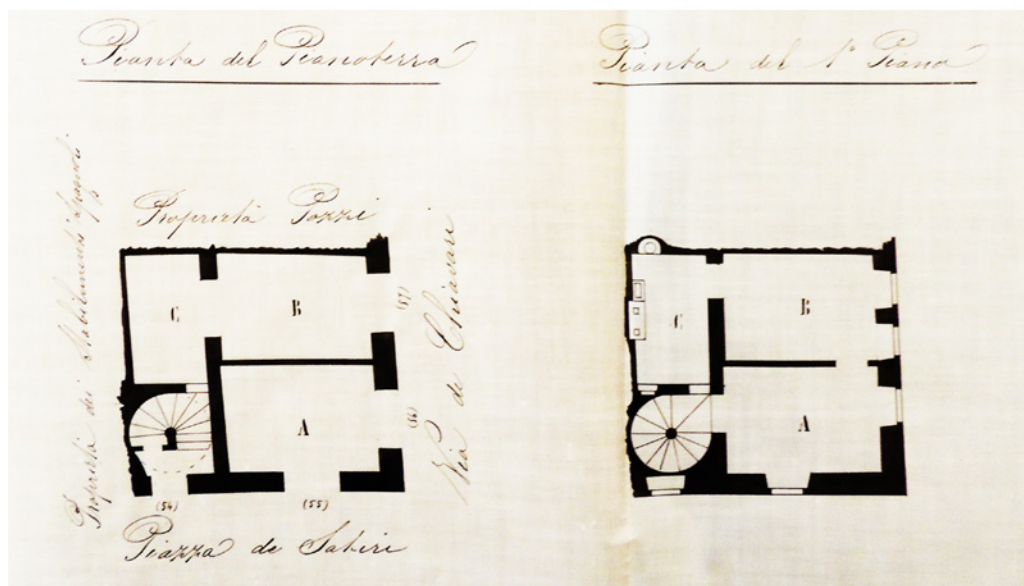 Pianta del Pianoterra
Pianta del 1° Piano
Proprietà dei Stabilimenti Spagnoli
Proprietà Pozzi
Via de Chiavari
C
B
(57)
A
(56)
(54)
(55)
Piazza de Satiri
C
B
A